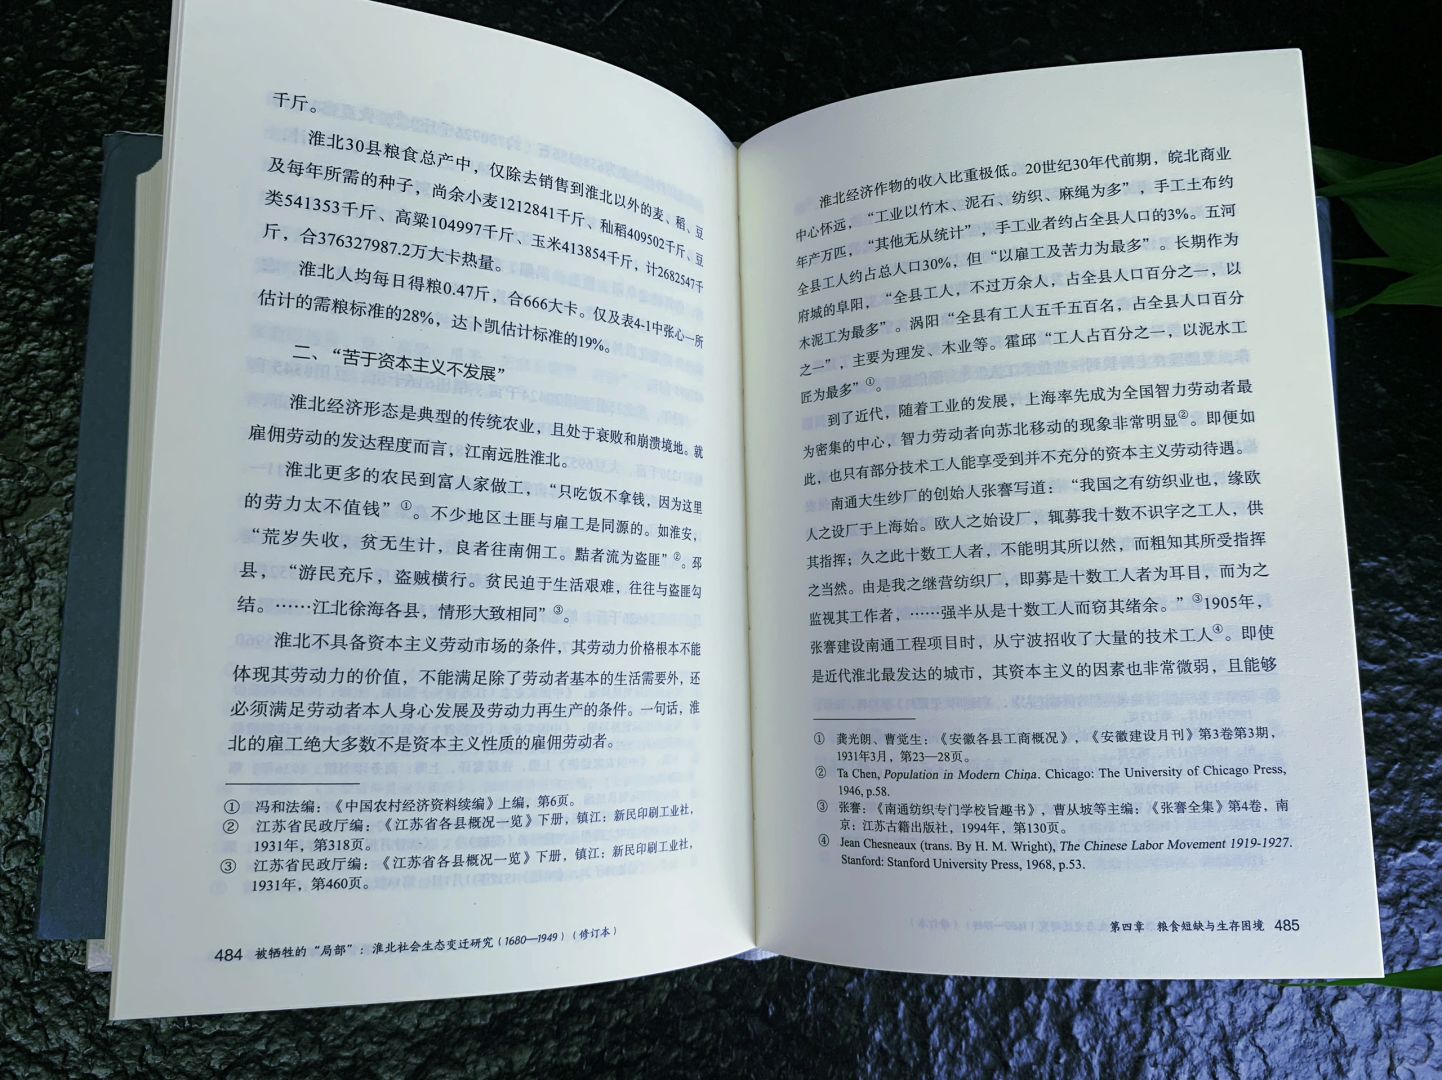 千斤。
淮北30县粮食总产中，仅除去销售到淮北以外的麦、稻、豆
及每年所需的种子，尚余小麦1212841千斤、秈稻409502千斤、豆
类541353千斤、高粱104997千斤、玉米413854千斤，计2682547千
斤，合376327987.2万大卡热量。
淮北人均每日得粮0.47斤，合666大卡。仅及表4-1中张心一所
估计的需粮标准的28%，达卜凯估计标准的19%。
二、“苦于资本主义不发展”
淮北经济形态是典型的传统农业，且处于衰败和崩溃境地。就
雇佣劳动的发达程度而言，江南远胜淮北。
淮北更多的农民到富人家做工，“只吃饭不拿钱，因为这里
的劳力太不值钱”①。不少地区土匪与雇工是同源的。如淮安，
“荒岁失收，贫无生计，良者往南佣工。黠者流为盗匪”②。邳
县，“游民充斥，盗贼横行。贫民迫于生活艰难，往往与盗匪勾
结。……江北徐海各县，情形大致相同”③。
淮北不具备资本主义劳动市场的条件，其劳动力价格根本不能
体现其劳动力的价值，不能满足除了劳动者基本的生活需要外，还
必须满足劳动者本人身心发展及劳动力再生产的条件。一句话，淮
北的雇工绝大多数不是资本主义性质的雇佣劳动者。
① 冯和法编：《中国农村经济资料续编》上编，第6页。
② 江苏省民政厅编：《江苏省各县概况一览》下册，镇江：新民印刷工业社，
1931年，第318页。
③ 江苏省民政厅编：《江苏省各县概况一览》下册，镇江：新民印刷工业社，
1931年，第460页。
484 被牺牲的“局部”：淮北社会生态变迁研究（1680—1949）（修订本）
淮北经济作物的收入比重极低。20世纪30年代前期，皖北商业
中心怀远，“工业以竹木、泥石、纺织、麻绳为多”，手工土布约
年产万匹，“其他无从统计”，手工业者约占全县人口的3%。五河
全县工人约占总人口30%，但“以雇工及苦力为最多”。长期作为
府城的阜阳，“全县工人，不过万余人，占全县人口百分之一，以
木泥工为最多”。涡阳“全县有工人五千五百名，占全县人口百分
之一”，主要为理发、木业等。霍邱“工人占百分之一，以泥水工
匠为最多”①。
到了近代，随着工业的发展，上海率先成为全国智力劳动者最
为密集的中心，智力劳动者向苏北移动的现象非常明显②。即便如
此，也只有部分技术工人能享受到并不充分的资本主义劳动待遇。
南通大生纱厂的创始人张謇写道：“我国之有纺织业也，缘欧
人之设厂于上海始。欧人之始设厂，辄募我十数不识字之工人，供
其指挥；久之此十数工人者，不能明其所以然，而粗知其所受指挥
之当然。由是我之继营纺织厂，即募是十数工人者为耳目，而为之
监视其工作者，……强半从是十数工人而窃其绪余。”③1905年，
张謇建设南通工程项目时，从宁波招收了大量的技术工人④。即使
是近代淮北最发达的城市，其资本主义的因素也非常微弱，且能够
① 龚光朗、曹觉生：《安徽各县工商概况》，《安徽建设月刊》第3卷第3期，
1931年3月，第23—28页。
② Ta Chen, Population in Modern China. Chicago: The University of Chicago Press,
1946, p.58.
③ 张謇：《南通纺织专门学校旨趣书》，曹从坡等主编：《张謇全集》第4卷，南
京：江苏古籍出版社，1994年，第130页。
④ Jean Chesneaux (trans. By H. M. Wright), The Chinese Labor Movement 1919-1927.
Stanford: Stanford University Press, 1968, p.53.
第四章 粮食短缺与生存困境 485